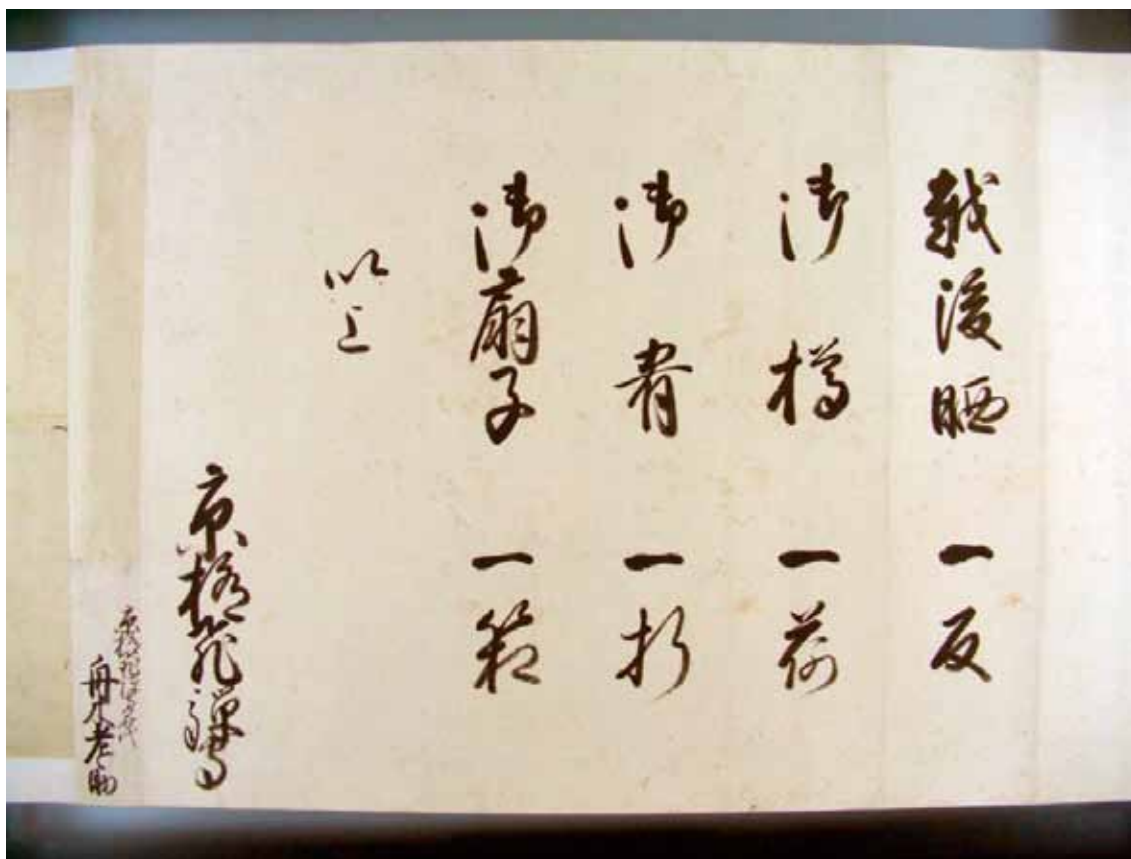 越後晒 一反
御樽 一荷
御肴 一折
御扇子 一箱
以上
京極飛騨守
京極飛騨守名代
舟木老之助